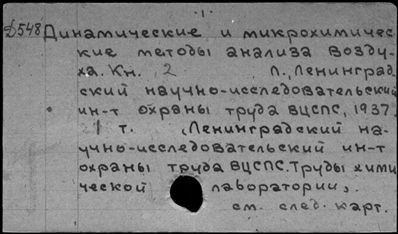 1.
Д548 Динамические и микрохимичес
кие методы анализа возду-
ха. Кн. 2 Л., Ленинград
ский научно-исследовательский
ин-т охраны труда ВЦСПС, 1937.
21 т. (Ленинградский на-
учно-исследовательский ин-т
охраны труда ВЦСПС. Труды хими
ческой лаборатории).
см. след. карт.